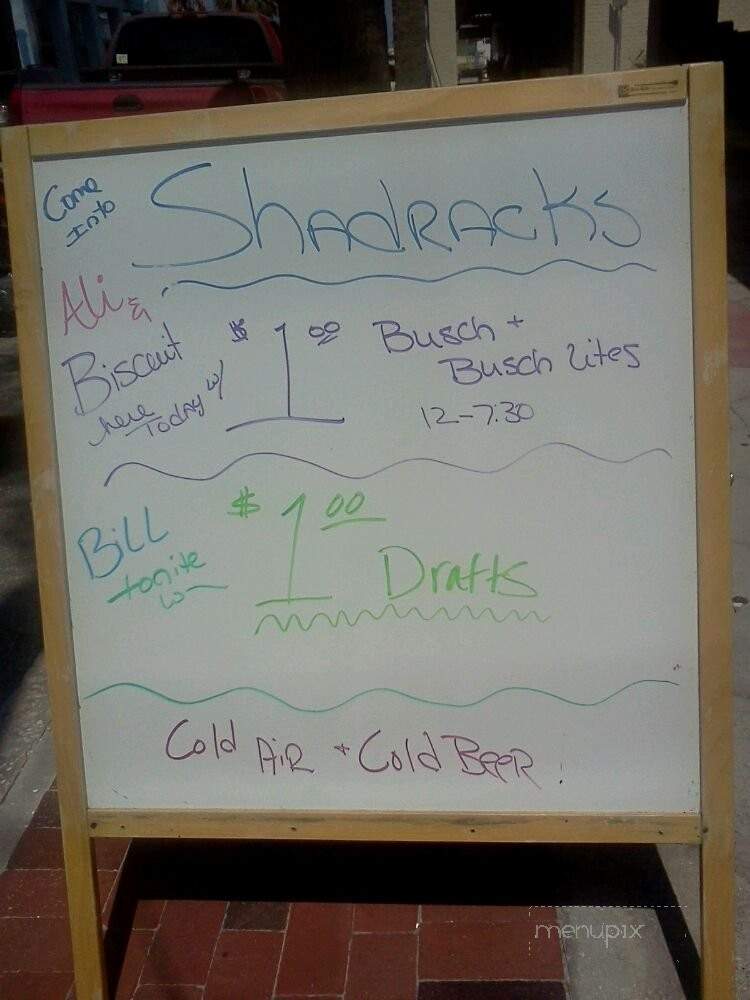 Come
Into
Shadracks
Ali &
Biscuit
here
Today w/
$ 1 00
Busch +
Busch Lites
12-7:30
Bill
tonite
w
$ 1 00
Drafts
Cold Air + Cold Beer!
menupix